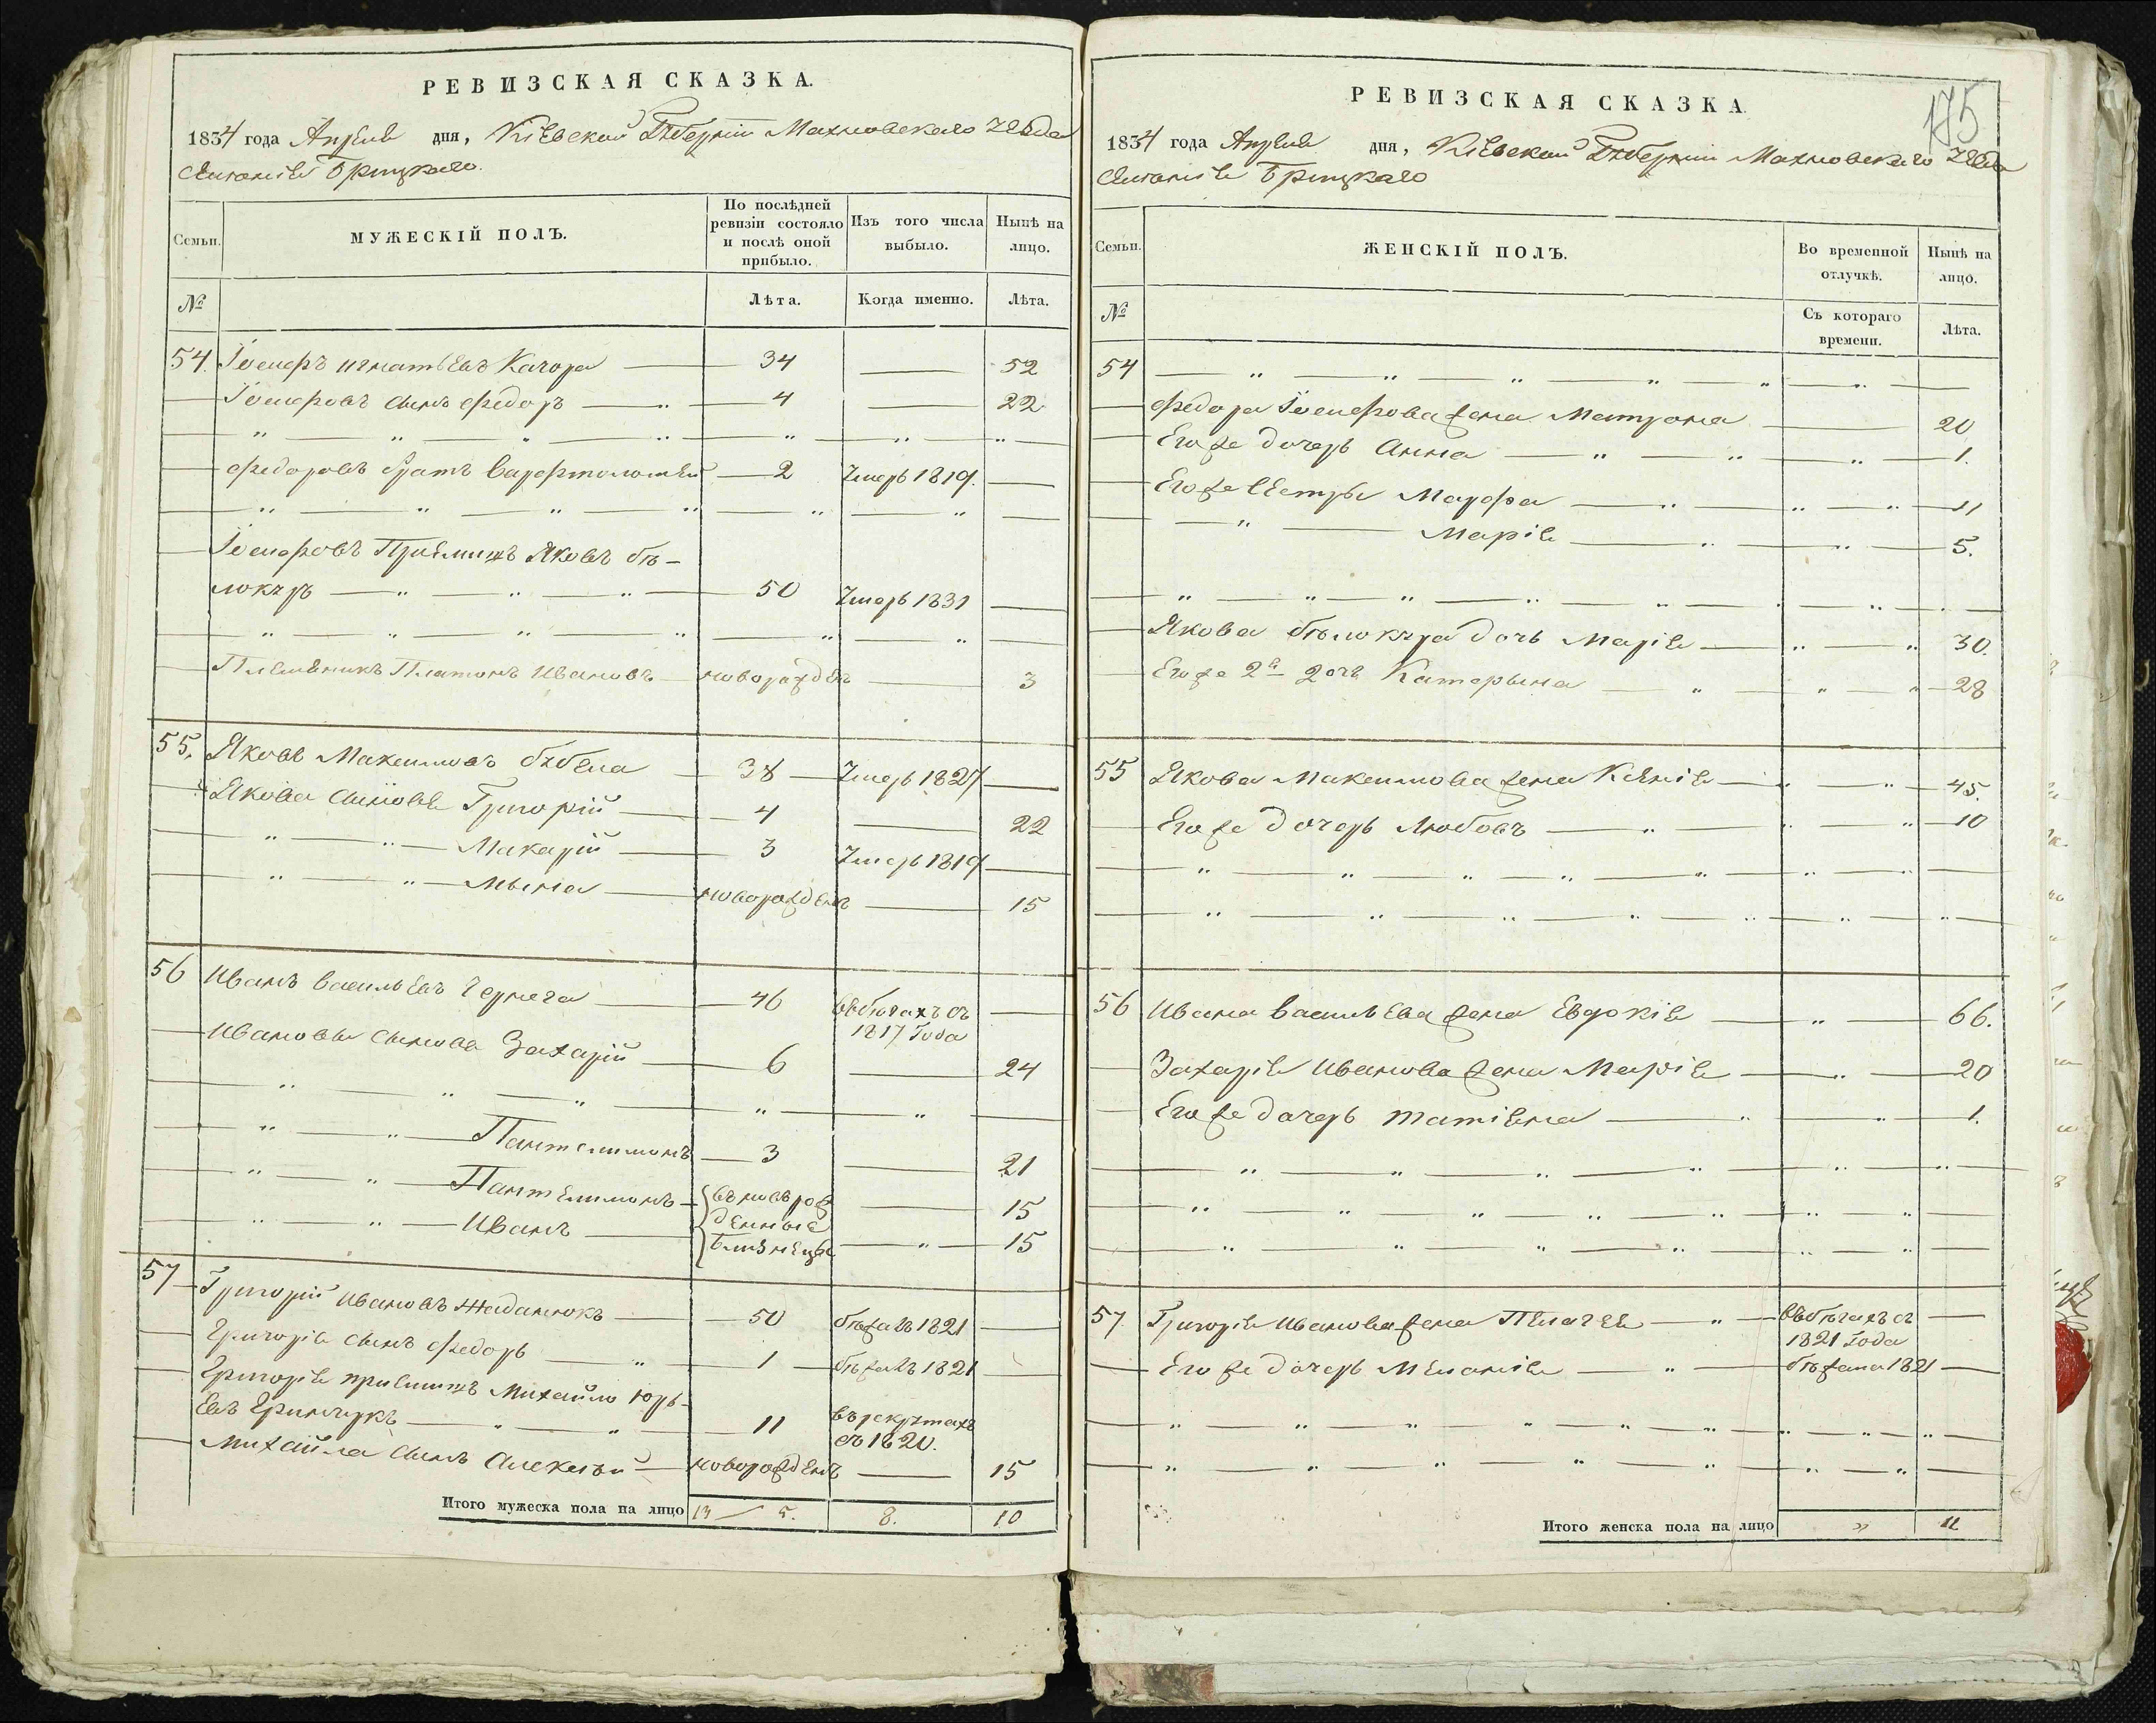 РЕВИЗСКАЯ СКАЗКА.
1834 года Апреля дня, Кіевской Губерніи Махновскаго Уезда
Брицкаго.
Семьи. МУЖЕСКІЙ ПОЛЪ. По послѣдней ревизіи состояло и послѣ оной прибыло. Изъ того числа выбыло. Нынѣ на лицо.
№ Лѣта. Когда именно. Лѣта.
54. Іосифъ Игнатьевъ Качора 34 52
Іосифовъ сынъ Федоръ 4 22
Федоровъ братъ Варфоломей 2 Умеръ 1819.
Іосифовъ Пріемишъ Яковъ Бѣ-
локуръ 50 Умеръ 1831
Племеникъ Платонъ Ивановъ новорожденъ 3
55. Яковъ Максимовъ 38 Умеръ 1827
Якова сыновья Григорій 4 22
Макарій 3 Умеръ 1819
Мына новорожденъ 15
56 Иванъ Васильевъ Чернега 46 въ бѣгахъ съ
1817 года
Ивановы сыновья Захарій 6 24
Пантелимонъ 3 21
Пантелимонъ вновьрож 15
денные
Иванъ близнецы 15
57 Григорій Ивановъ Жаданюкъ 50 бѣжалъ 1821
Григорія сынъ Федоръ 1 бѣжалъ 1821
Григорія пріемишъ Михайло Юрь-
евъ Гринчукъ 11 въ рекрутахъ
съ 1820.
Михайла сынъ Алексѣй новорожденъ 15
Итого мужеска пола на лицо 13 5. 8. 10
175
РЕВИЗСКАЯ СКАЗКА
1834 года Апреля дня, Кіевской Губерніи Махновскаго Уезда
Брицкаго
Семьи. ЖЕНСКІЙ ПОЛЪ. Во временной отлучкѣ. Нынѣ на лицо.
№ Съ котораго времени. Лѣта.
54
Федора Іосифова жена Матрона 20
Его же дочерь Анна 1.
Его же сестры Марфа 11
Марія 5.
Якова Бѣлокура дочь Марія 30.
Его же 2я дочь Катерына 28
55 Якова Максимова жена Ксенія 45.
Его же дочерь Любовъ 10
56 Ивана Васильева жена Евдокія 66.
Захарія Иванова жена Марія 20
Его же дочерь Татіяна 1.
57. Григорія Иванова жена Пелагея въ бѣгахъ съ
1821 года
Его же дочерь Меланія бѣжала 1821
Итого женска пола на лицо 11